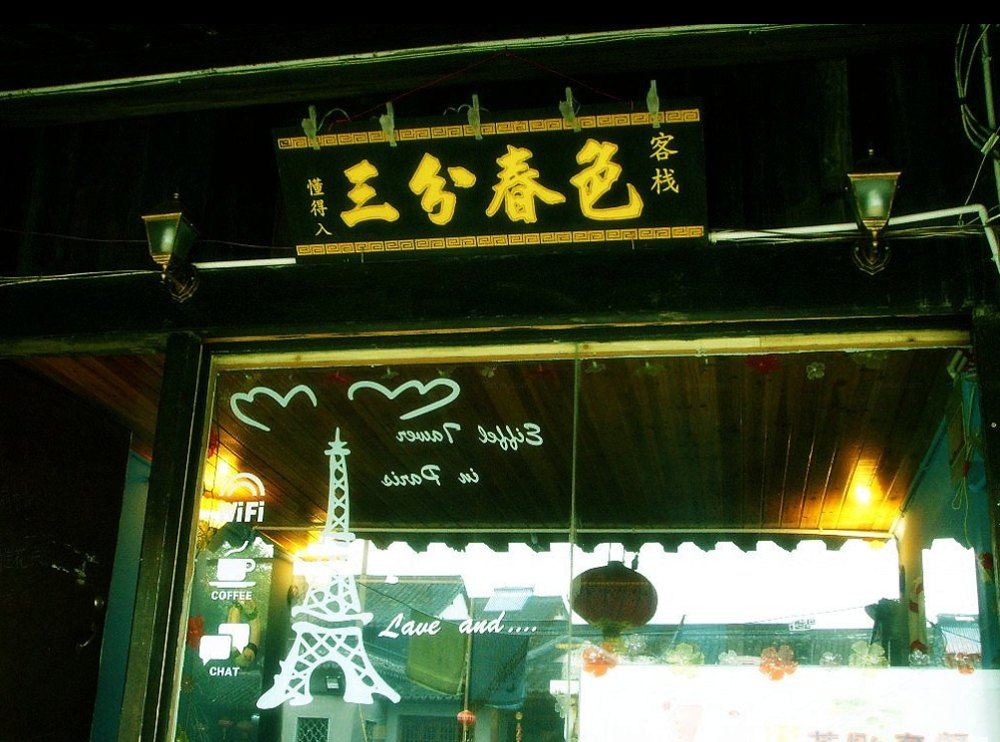 客栈
三分春色
懂得入
Eiffel Tawer
in Paris
WiFi
COFFEE
CHAT
Lave and....